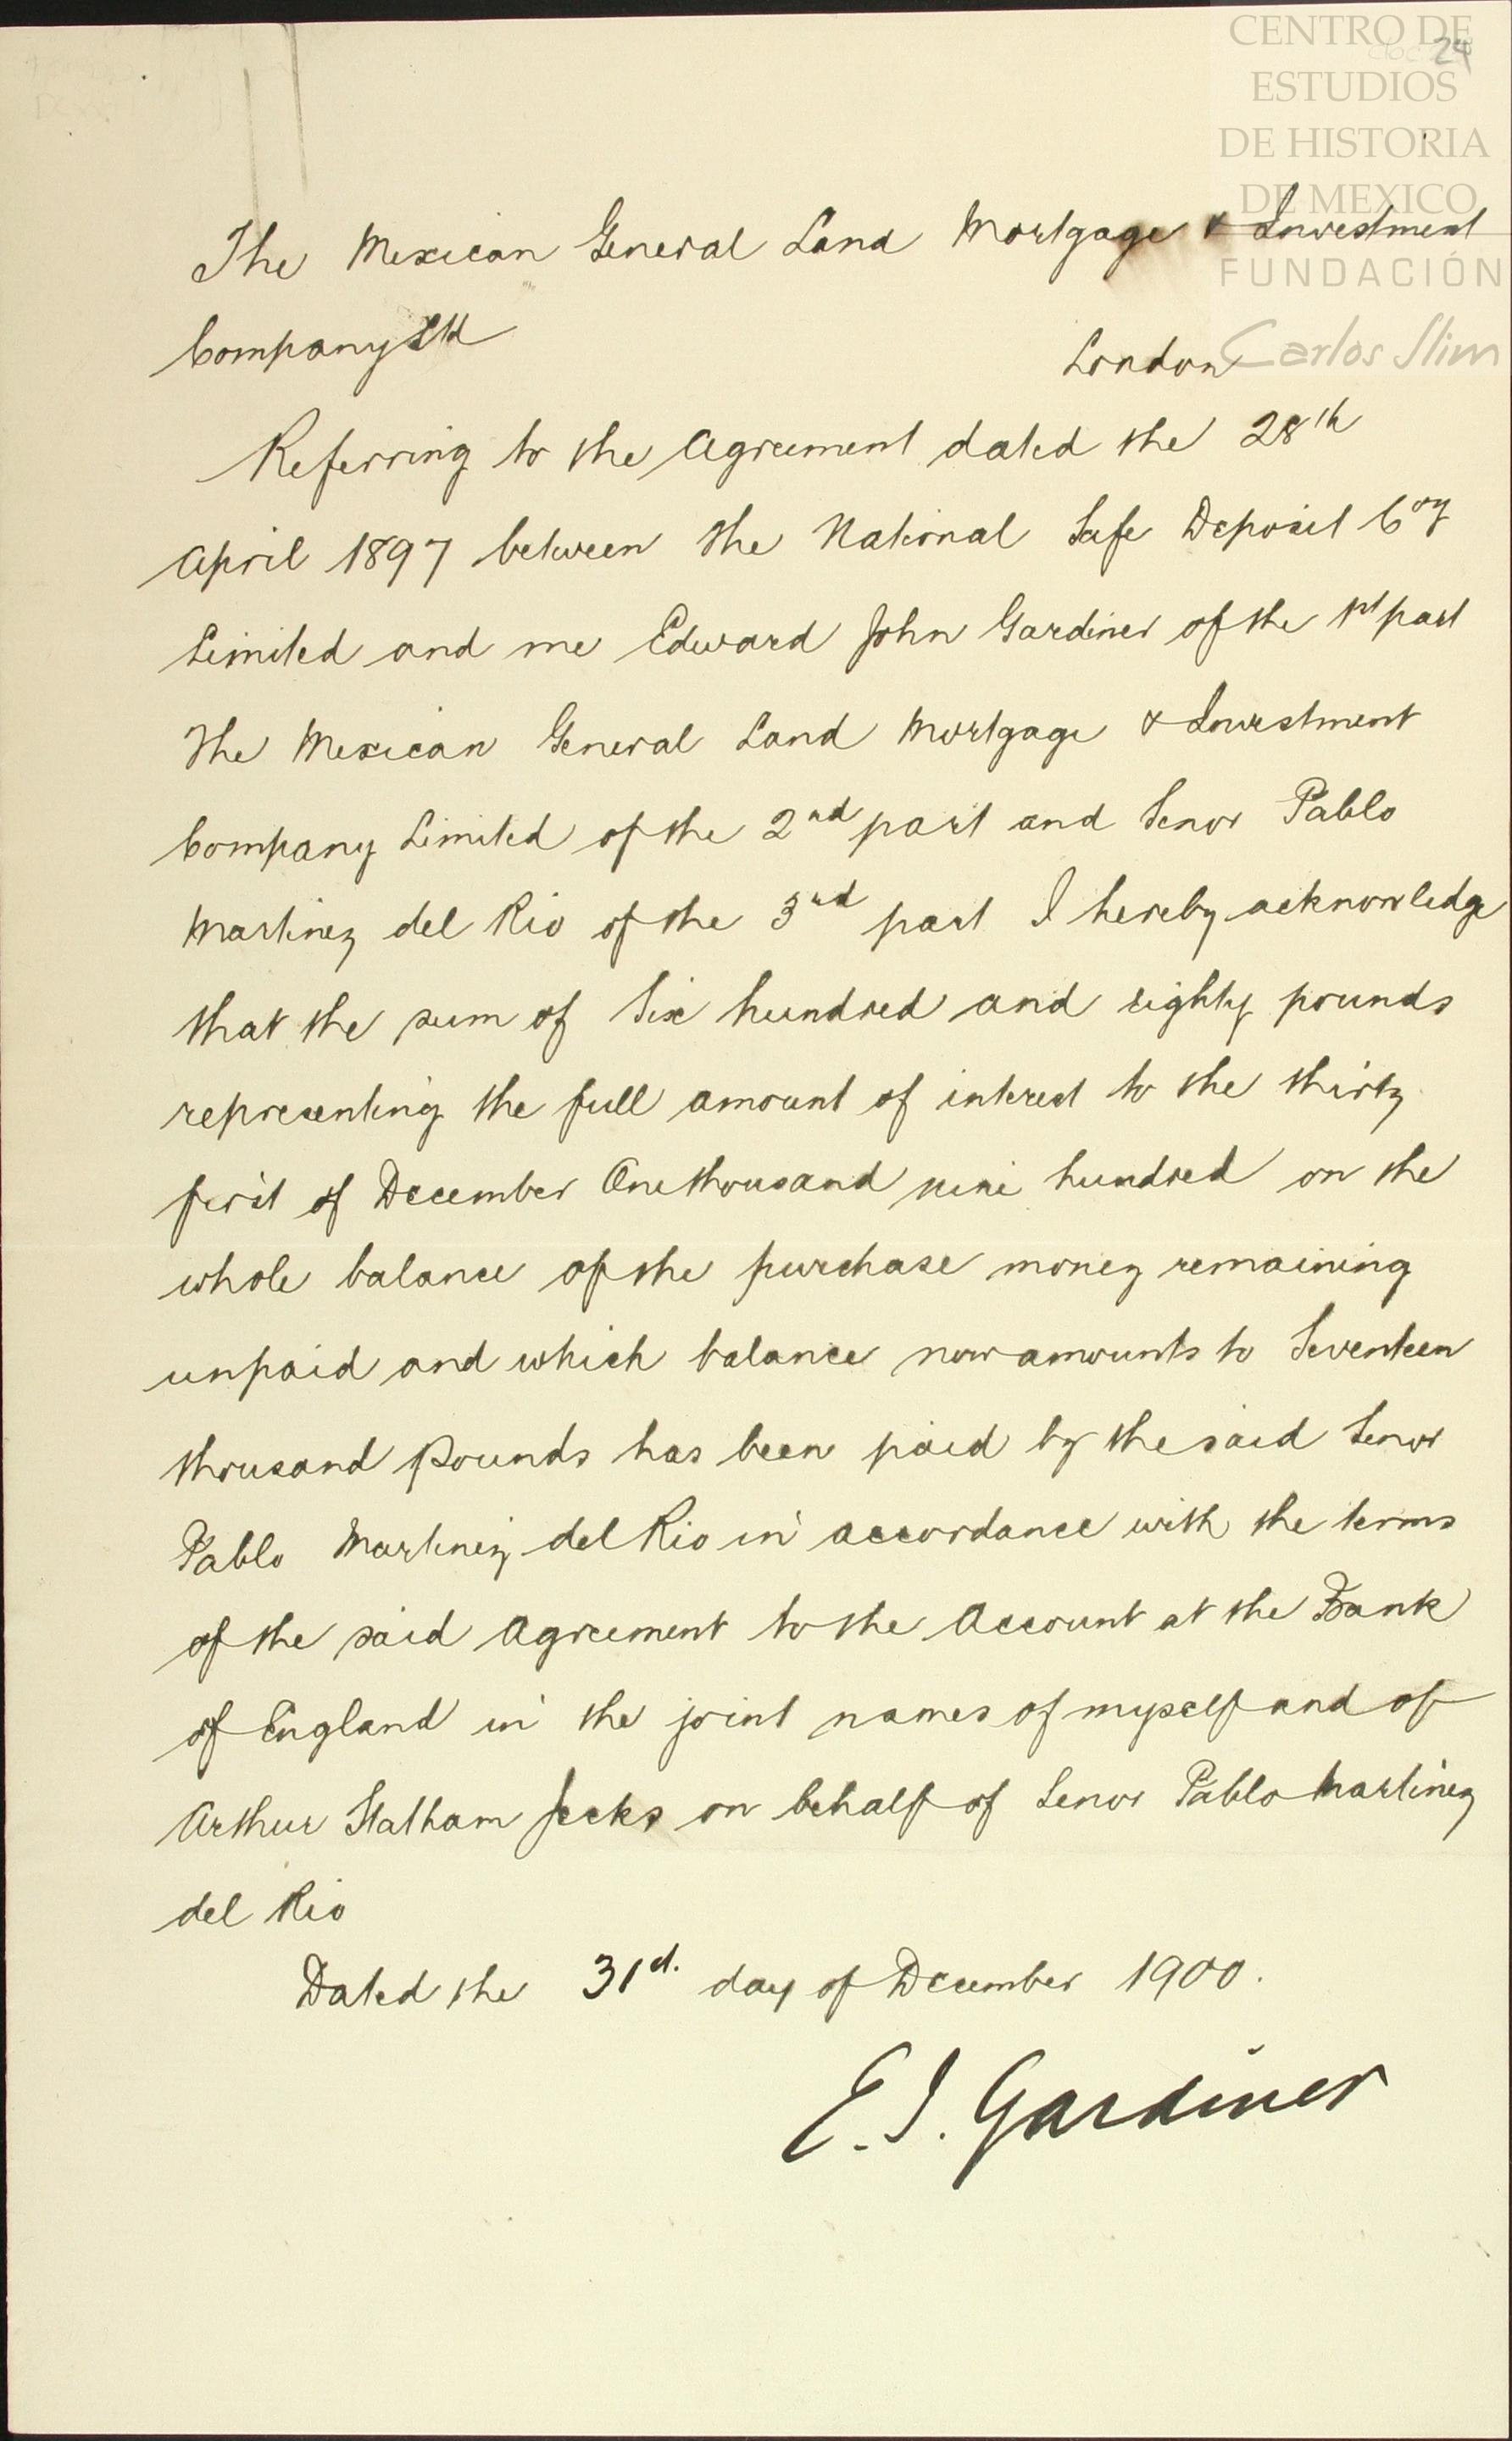 CENTRO DE
24
ESTUDIOS
DE HISTORIA
DE MEXICO
FUNDACIÓN
Carlos Slim
The Mexican General Land Mortgage & Investment
Company Ltd
London
Referring to the Agreement dated the 28th
April 1897 between the National Safe Deposit Coy
Limited and me Edward John Gardiner of the 1st part
The Mexican General Land Mortgage & Investment
Company Limited of the 2nd part and Senor Pablo
Martinez del Rio of the 3rd part I hereby acknowledge
that the sum of Six hundred and eighty pounds
representing the full amount of interest to the thirty
first of December One thousand nine hundred on the
whole balance of the purchase money remaining
unpaid and which balance now amounts to Seventeen
thousand Pounds has been paid by the said Senor
Pablo Martinez del Rio in accordance with the terms
of the said Agreement to the Account at the Bank
of England in the joint names of myself and of
Arthur Statham Jecks on behalf of Senor Pablo Martinez
del Rio
Dated the 31st. day of December 1900.
E. J. Gardiner